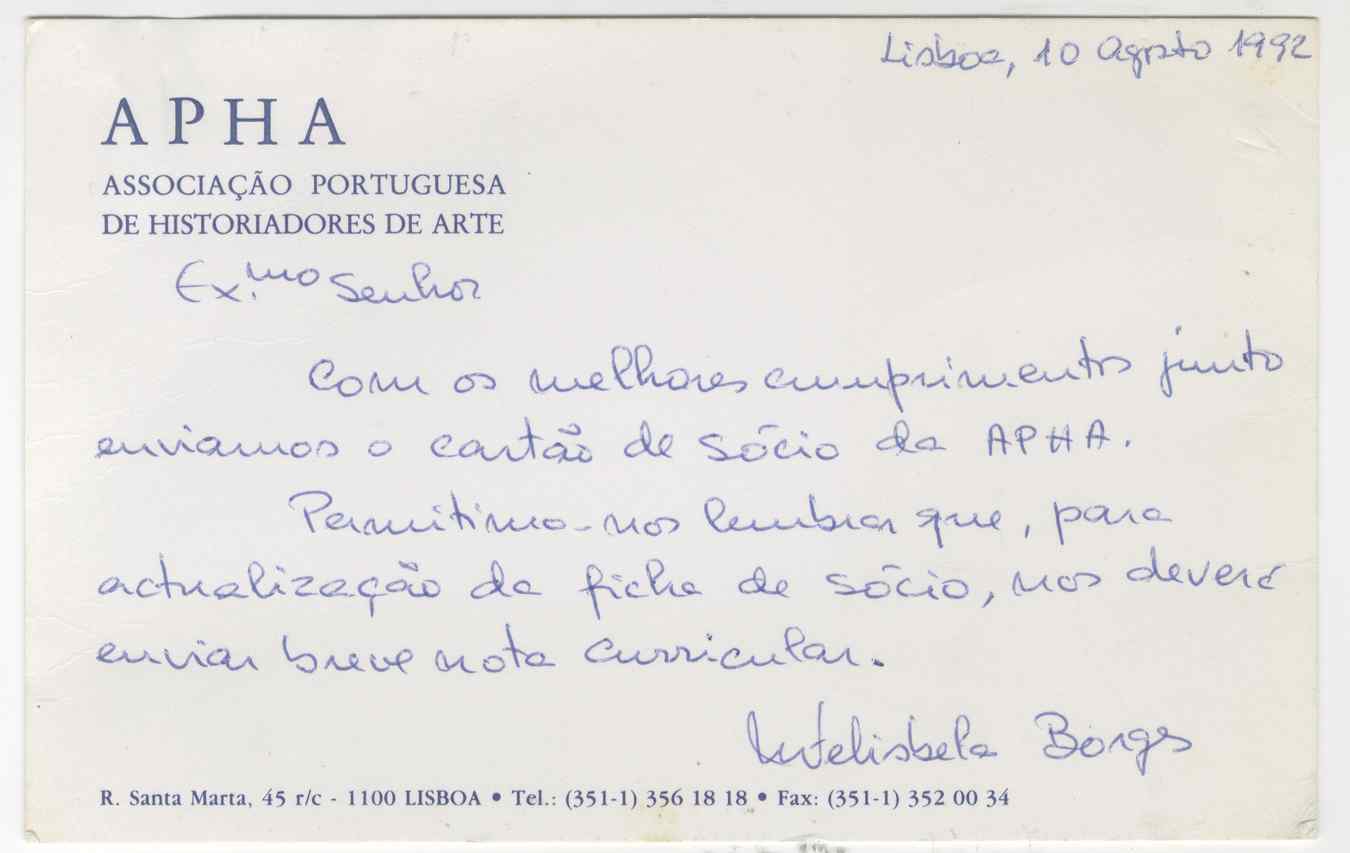 Lisboa, 10 Agosto 1992
APHA
ASSOCIAÇÃO PORTUGUESA
DE HISTORIADORES DE ARTE
Ex.mo Senhor
Com os melhores cumprimentos junto
enviamos o cartão de sócio da APHA.
Permitimo-nos lembrar que, para
actualização da ficha de sócio, nos deverá
enviar breve nota curricular.
Borges
R. Santa Marta, 45 r/c - 1100 LISBOA • Tel.: (351-1) 356 18 18 • Fax: (351-1) 352 00 34